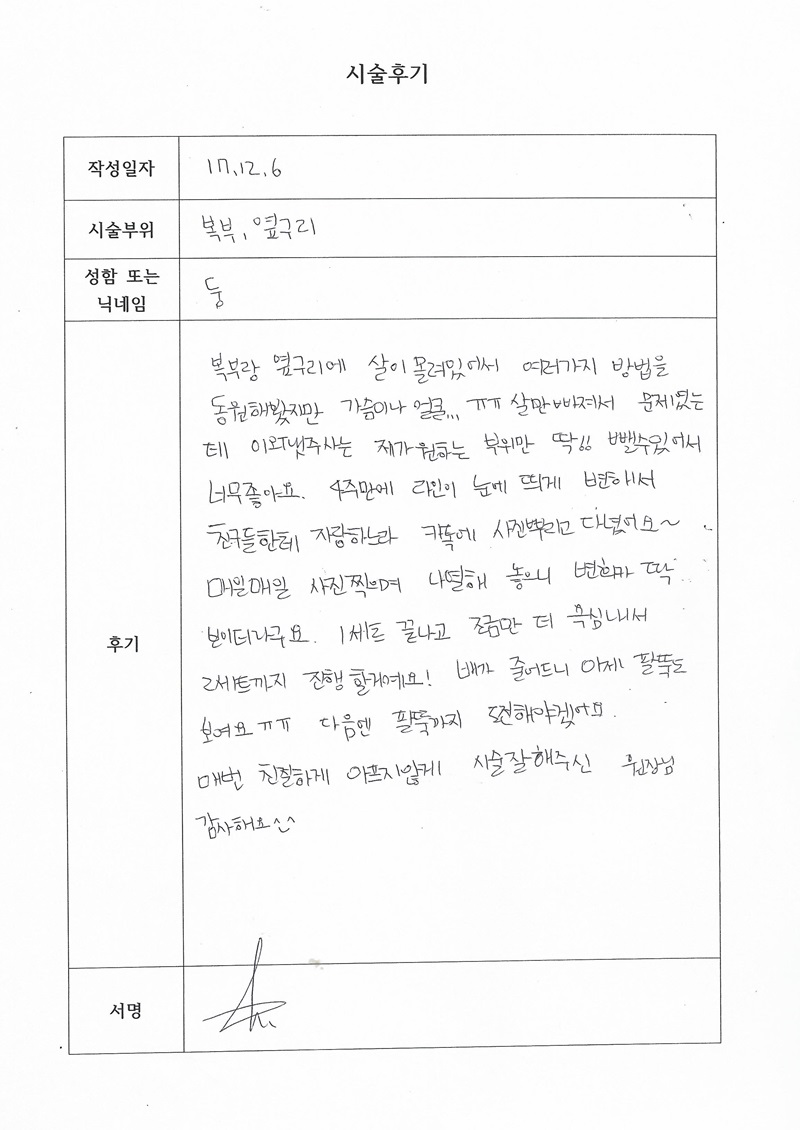 시술후기
작성일자 17.12.6
시술부위 복부, 옆구리
성함 또는
닉네임
둥
후기
복부랑 옆구리에 살이 몰려있어서 여러가지 방법을
동원해봤지만 가슴이나 얼굴... ㅠㅠ 살만 빠져서 문제였는
데 이와냇주사는 제가 원하는 부위만 딱!! 뺄수있어서
너무좋아요. 4주만에 라인이 눈에 띄게 변해서
친구들한테 자랑하느라 카톡에 사진뿌리고 다녔어요~
매일매일 사진찍으며 나열해 놓으니 변화가 딱
보이더라구요. 1세트 끝나고 조금만 더 욕심내서
2세트까지 진행할거예요! 배가 줄어드니 이제 팔뚝도
보여요ㅠㅠ 다음엔 팔뚝까지 도전해야겠어요.
매번 친절하게 아프지않게 시술잘해주신 원장님
감사해요^^
서명